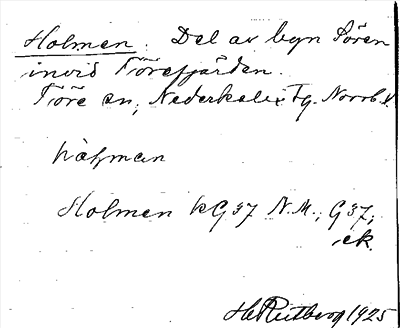 Holmen. Del av byn Sören
invid Törefjärden.
Töre sn, Nederkalix Tg. Norrb. l.
hålman
Holmen kG 37 N.M.; G 37,
ek.
H Reutberg 1925